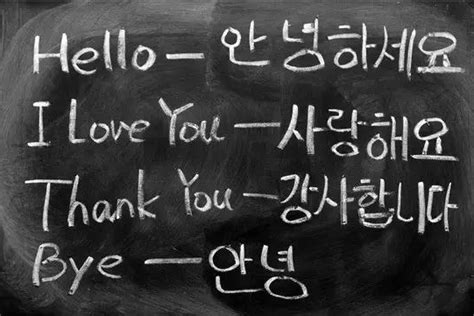 Hello – 안녕하세요
I Love You – 사랑해요
Thank You – 감사합니다
Bye – 안녕